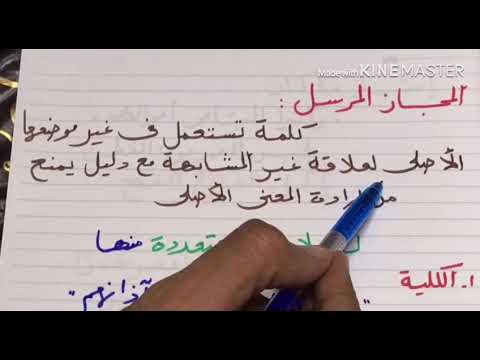 Made with KINEMASTER
المجاز المرسل :
كلمة تستعمل فى غير موضعها
الأصلى لعلاقة غير المشابهة مع دليل يمنع
من إرادة المعنى الأصلى
منها
١- الكلية
" آذانهم "